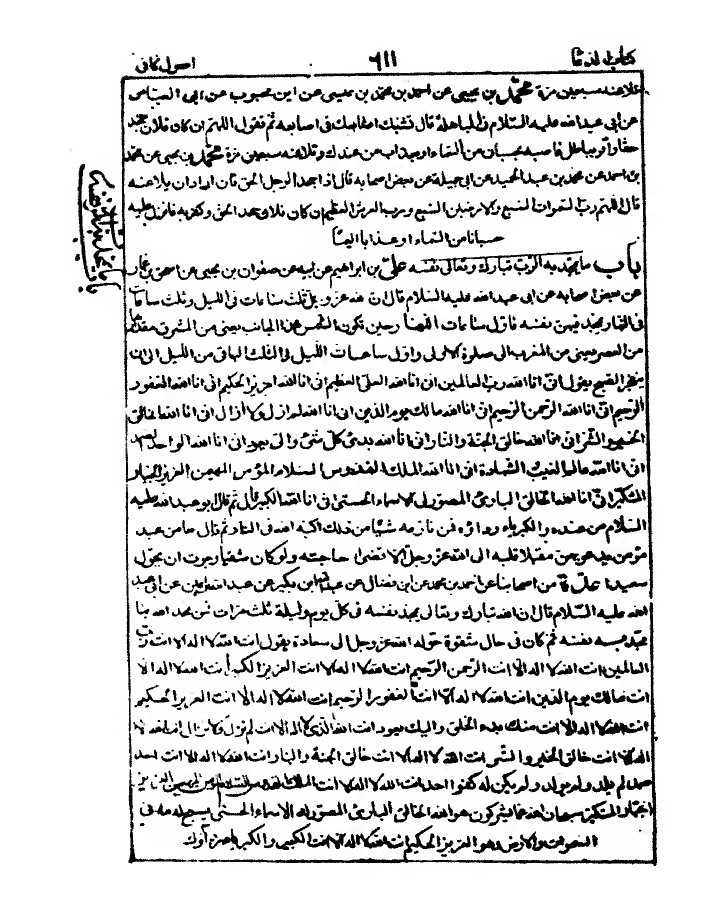 كتاب الدعا ٦١١ اصول كافى
تلاعنه سبعين مرة محمّد بن يحيى عن احمد بن محمد بن عيسى عن ابن محبوب عن ابى العباس
عن ابى عبد الله عليه السّلام فى المباهلة قال تشبك اصابعك فى اصابعه ثم تقول اللهم ان كان فلان جحد
حقا واقر بباطل فاصبه بحسبان من السّماء او بعذاب من عندك وتلاعنه سبعين مرة محمّد بن يحيى عن محمد
بن احمد عن محمد بن عبد الحميد عن ابى جميلة عن بعض اصحابه قال اذا جحد الرجل الحق فان اراد ان يلاعنه
قال اللهم ربّ السّموات السّبع والارضين السّبع وربّ العرش العظيم ان كان فلان جحد الحق وكفر به فانزل عليه
حسبانا من السّماء او عذابا اليمًا
باب ما يمجّد به الرّبّ تبارك وتعالى نفسه علىّ بن ابراهيم عن ابيه عن صفوان بن يحيى عن اسحق بن عمار
عن بعض اصحابه عن ابى عبد الله عليه السّلام قال ان لله عزّ وجلّ ثلث ساعات فى الليل وثلث ساعات
فى النّهار يمجّد فيهنّ نفسه فاوّل ساعات النّهار حين تكون الشّمس هذا الجانب يعنى من المشرق مقدارها
من العصر يعنى من المغرب الى صلوة الاولى واوّل ساعات اللّيل فى الثلث الباقى من الليل الى ان
ينفجر الصّبح يقول انّى انا الله ربّ العالمين انى انا الله العلىّ العظيم انى انا الله العزيز الحكيم انى انا الله الغفور
الرّحيم انّى انا الله الرّحمن الرّحيم انى انا الله مالك يوم الدين انى انا الله لم ازل ولا ازال انى انا الله خالق
الخير والشّر انّى انا الله خالق الجنّة والنّار انى انا الله بدئ كلّ شئ والىّ يعود انى انا الله الواحد الصمد
انّى انا الله عالم الغيب والشّهادة انى انا الله الملك القدوس السلام المؤمن المهيمن العزيز الجبار
المتكبّر انّى انا الله الخالق البارئ المصوّر لى الاسماء الحسنى انى انا الله الكبير قال ثم قال ابو عبد الله عليه
السّلام من عنده والكبرياء رداؤه فمن نازعه شيئا من ذلك اكبّه الله فى النار ثم قال ما من عبد
مؤمن يدعو بهنّ مقبلا قلبه الى الله عزّ وجلّ الا قضى حاجته ولو كان شقيا رجوت ان يحوّل
سعيدا عدّة من اصحابنا عن احمد بن محمد عن ابن فضال عن عبد الله بن بكير عن عبد الله بن اعين عن ابى عبد
الله عليه السّلام قال ان الله تبارك وتعالى يمجّد نفسه فى كلّ يوم وليلة ثلث مرات فمن مجد الله بما
مجّد به نفسه ثم كان فى حال شقوة حوّله الله عزّ وجل الى سعادة يقول انت الله لا اله الا انت ربّ
العالمين انت الله لا اله الا انت الرّحمن الرّحيم انت الله لا اله الا انت العزيز الكبير انت الله لا اله الا
انت مالك يوم الدّين انت الله لا اله الا انت الغفور الرّحيم انت الله لا اله الا انت العزيز الحكيم
انت الله لا اله الا انت منك بدء الخلق واليك يعود انت الله الذى لا اله الا انت لم تزل ولا تزال انت الله لا
اله الا انت خالق الخير والشّر انت الله لا اله الا انت خالق الجنّة والنار انت الله لا اله الا انت احد
صمد لم يلد ولم يولد ولم يكن له كفوا احد انت الله لا اله الا انت الملك القدوس السّلام المؤمن المهيمن العزيز
الجبار المتكبّر سبحان الله عمّا يشركون هو الله الخالق البارئ المصوّر له الاسماء الحسنى يسبح له ما فى
السّموات والارض وهو العزيز الحكيم انت الله لا اله الا انت الكبير والكبرياء رداؤك
باب ما يمجد به الرّب نفسه